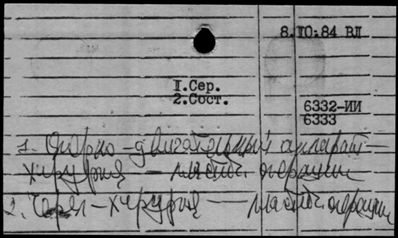 8.10:84 ВЛ
I.Сер.
2.Сост.
6332-ИИ
6333
1. Опорно-двигательный аппарат —
хирургия — пласт. операции
2. Череп-хирургия — пласт. операции